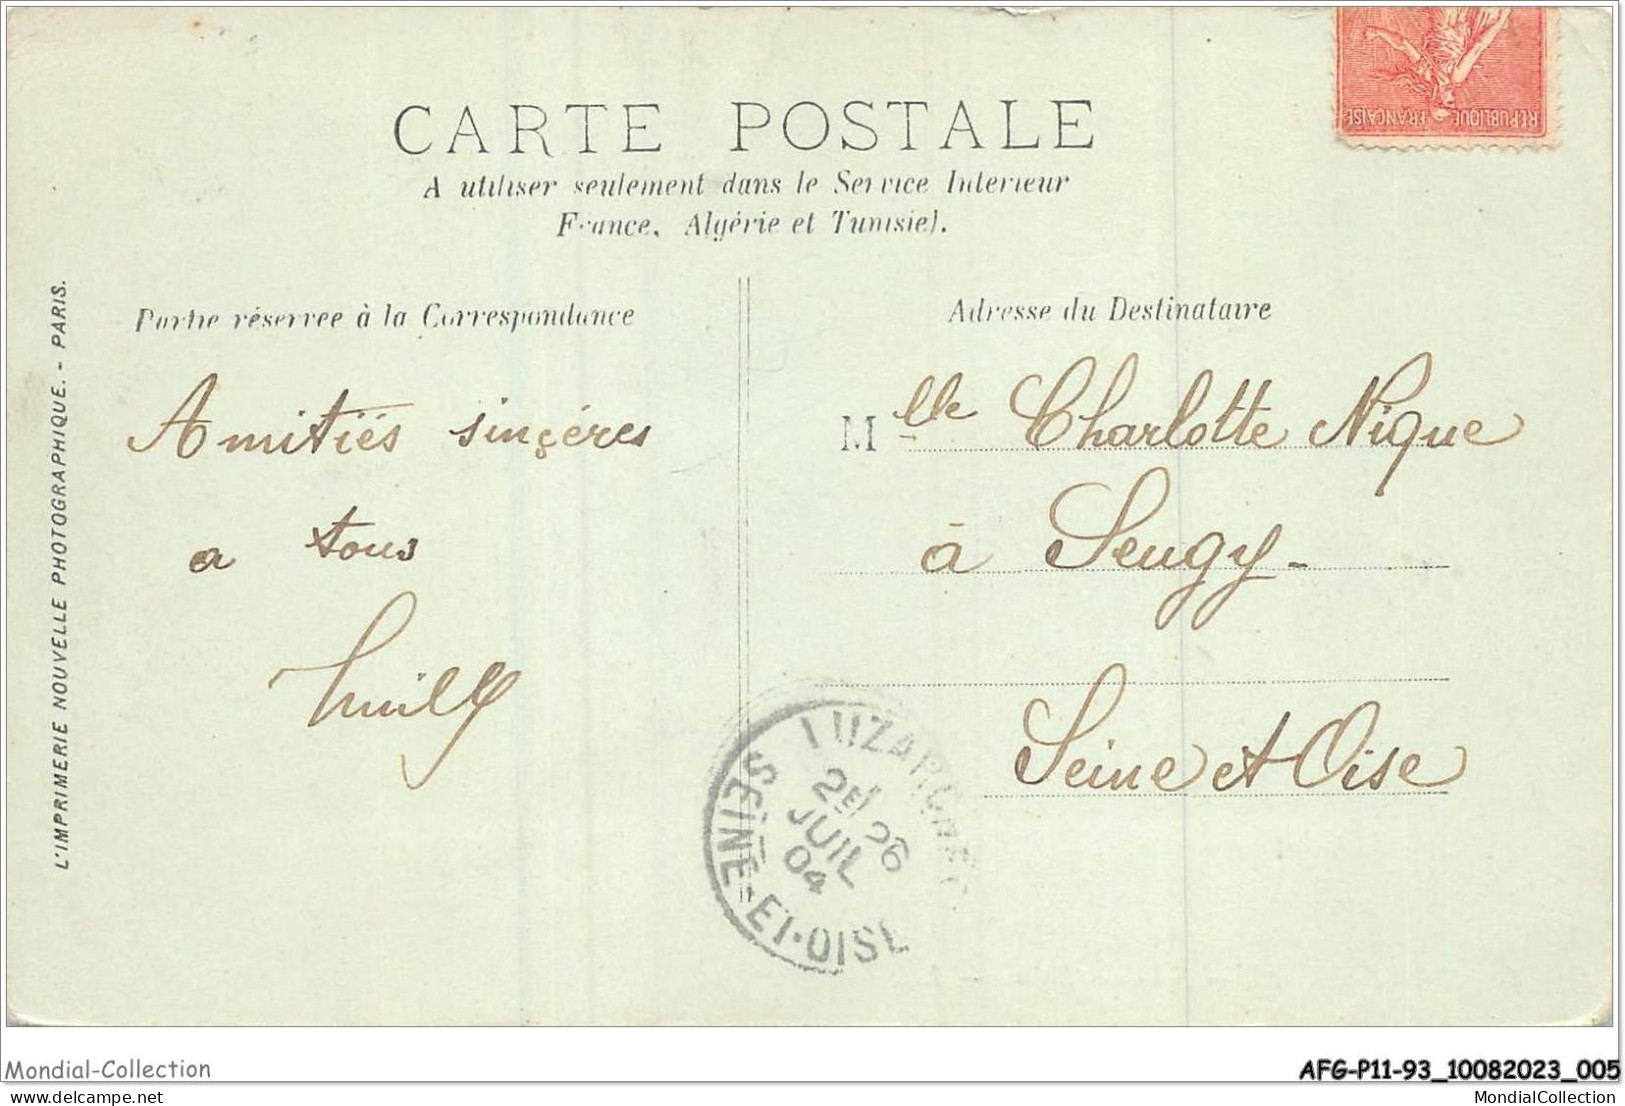 CARTE POSTALE
A utiliser seulement dans le Service Interieur
France, Algérie et Tunisie).
REPUBLIQUE FRANÇAISE
Partie réservée à la Correspondance
Adresse du Destinataire
Amitiés sinçéres
a tous
Mlle Charlotte Nique
à Seugy -
Seine et Oise
LUZARCHES
2E/ 26
JUIL
04
SEINE-ET-OISE
L'IMPRIMERIE NOUVELLE PHOTOGRAPHIQUE. - PARIS.
Mondial-Collection
AFG-P11-93_10082023_005
delcampe.net
MondialCollection